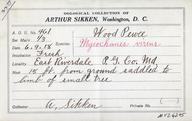 OOLOGICAL COLLECTION OF
ARTHUR SIKKEN, Washington, D. C.
A. O. U. No. 461 Wood Pewee
Set Mark 1/3 Myiochanes virens
Date 6.9.18
Incubation Fresh
East Riverdale P. G. Co. Md.
Nest 15 ft. from ground saddled to
limb of small tree
A. Sikken